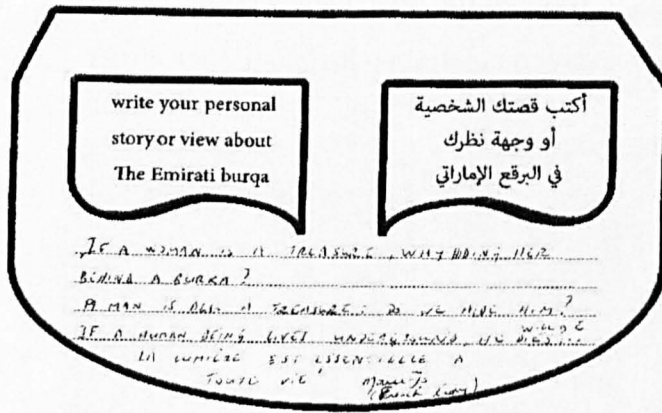 write your personal
story or view about
The Emirati burqa
أكتب قصتك الشخصية
أو وجهة نظرك
في البرقع الإماراتي
IF A WOMAN IS A TREASURE, WHY HIDING HER
BEHIND A BURKA?
A MAN IS ALSO A TREASURE: DO WE HIDE HIM?
IF A HUMAN BEING LIVES UNDERGROUND, HE DIES...
LA LUMIÈRE EST ESSENTIELLE A
TOUTE VIE
(French lady)